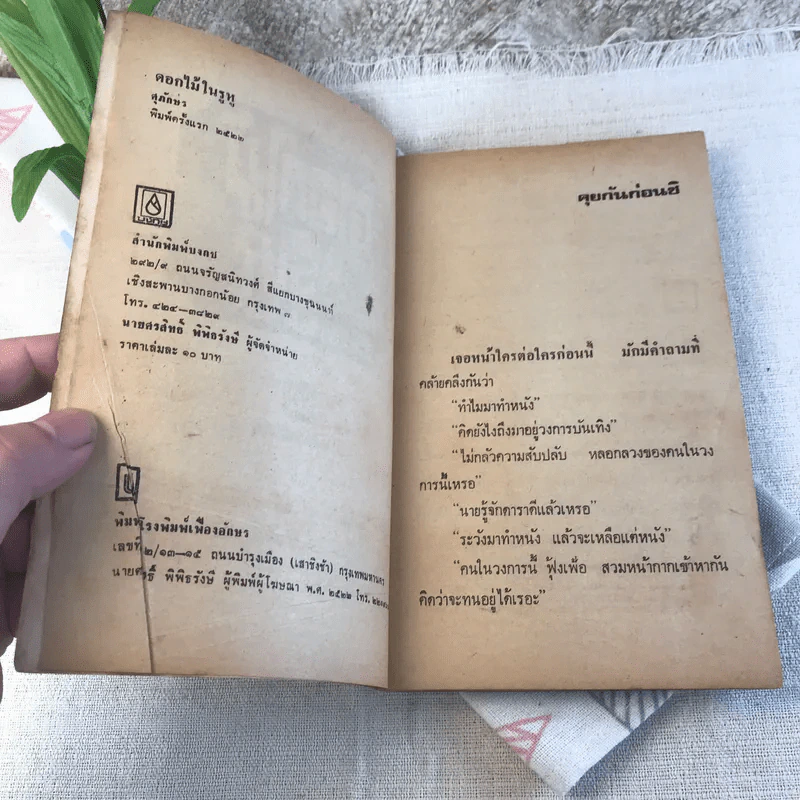 ดอกไม้ในรูหู
สุภักษร
พิมพ์ครั้งแรก ๒๕๒๒
บงกช
สำนักพิมพ์บงกช
๒๙๒/๙ ถนนจรัญสนิทวงศ์ สี่แยกบางขุนนนท์
เชิงสะพานบางกอกน้อย กรุงเทพ ๗
โทร. ๔๒๔—๓๘๒๙
พิพิธรังษี ผู้จัดจำหน่าย
ราคาเล่มละ ๑๐ บาท
โรงพิมพ์เฟื่องอักษร
เลขที่ ๒/๑๓—๑๕ ถนนบำรุงเมือง (เสาชิงช้า) กรุงเทพมหานคร
พิพิธรังษี ผู้พิมพ์ผู้โฆษณา พ.ศ. ๒๕๒๒ โทร.
คุยกันก่อนซิ
เจอหน้าใครต่อใครก่อนนี้ มักมีคำถามที่
คล้ายคลึงกันว่า
“ทำไมมาทำหนัง”
“คิดยังไงถึงมาอยู่วงการบันเทิง”
“ไม่กลัวความสับปลับ หลอกลวงของคนในวง
การนี้เหรอ”
“นายรู้จักดาราดีแล้วเหรอ”
“ระวังมาทำหนัง แล้วจะเหลือแต่หนัง”
“คนในวงการนี้ ฟุ้งเฟ้อ สวมหน้ากากเข้าหากัน
คิดว่าจะทนอยู่ได้เรอะ”